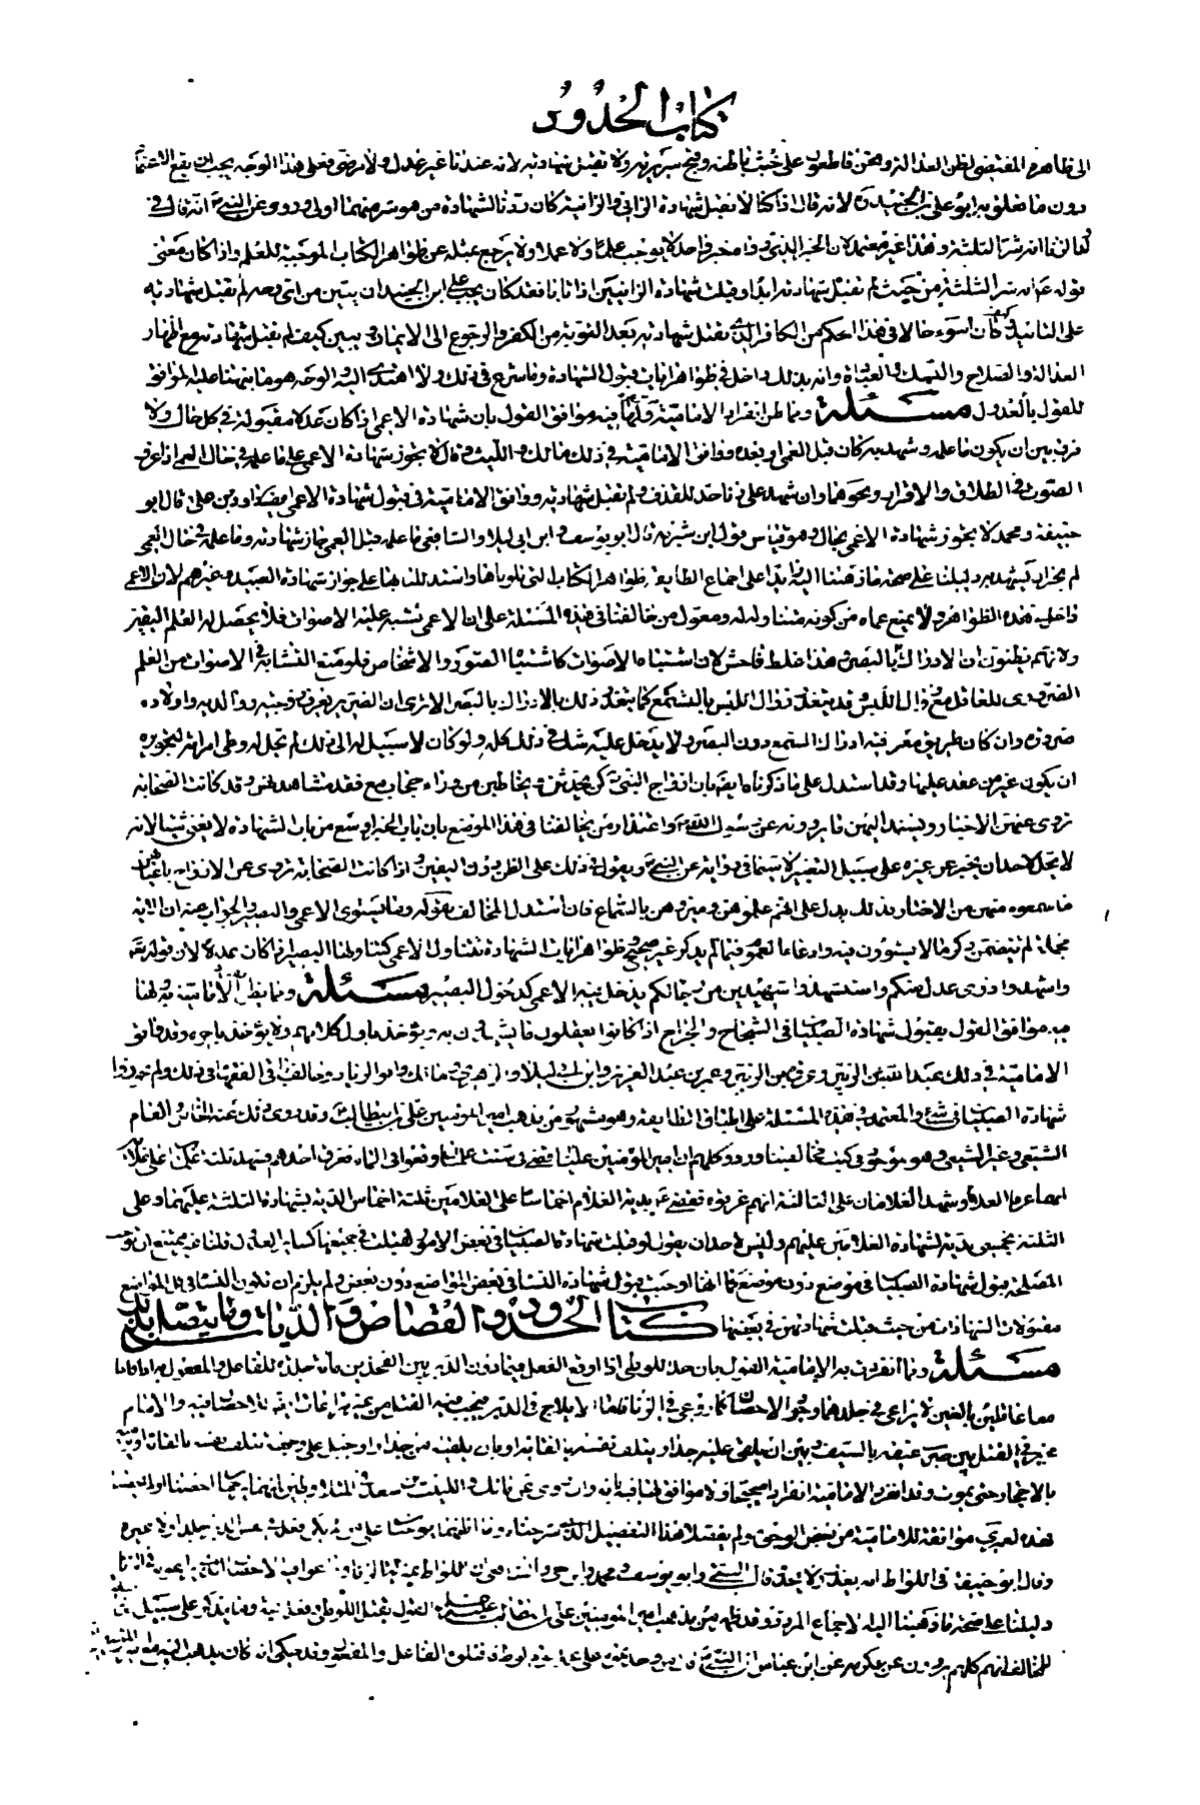 كتاب الحدود
الى ظاهره المقتضى لظن العدالة ونحن قاطعون على خبث باطنه وقبح سريرته ولا تقبل شهادته لانه عندنا غير عدل ولا مرضى فعلى هذا الوجه يجب ان يقع الاعتماد
دون ما تعلق به ابو على بن الجنيد لانه قال اذا كنا لا نقبل شهادة الزانى والزانية كان ردنا لشهادة من هو شر منهما اولى وروى عن النبى انه قال فى
الزنا انه شر الثلثة وهذا غير معتمد لان الخبر الذى رواه خبر واحد لا يوجب علما ولا عملا ولا يرجع بمثله عن ظواهر الكتاب الموجبة للعلم واذا كان معنى
قوله انه شر الثلثة من حيث لم تقبل شهادته ابدا وقبلت شهادة الزانيين اذا تابا فقد كان يجب على ابن الجنيد ان يبين من اى وجه لم تقبل شهادته
على التأبيد كان اسوء حالا فى هذا الحكم من الكافر الذى تقبل شهادته بعد التوبة من الكفر والرجوع الى الايمان ويبين كيف لم تقبل شهادته مع اظهار
العدالة والصلاح والنسك والعبادة وانه بذلك داخل فى ظواهر ايات قبول الشهادة وما شرع فى ذلك ولا اهتدى اليه والوجه هو ما نبهنا عليه
للقول بالعدول مسئلة ومما ظن انفراد الامامية به ولها فيه موافق القول بان شهادة الاعمى اذا كان عدلا مقبولة فى كل حال ولا
فرق بين ان يكون ما علمه وشهد به كان قبل العمى او بعده ووافق الامامية فى ذلك مالك والليث وقال لا يجوز شهادة الاعمى على ما علمه فى حال العمى اذا عرف
الصوت فى الطلاق والاقرار ونحوهما وان شهد على زنا حد للقذف ولم تقبل شهادته ووافق الامامية فى قبول شهادة الاعمى ايضا داود بن على قال ابو
حنيفة ومحمد لا يجوز شهادة الاعمى بحال وهو قياس قول ابن شبرمة قال ابو يوسف وابن ابى ليلى والشافعى ما علمه قبل العمى جاز شهادته وما علمه فى حال العمى
لم يجز ان يشهد به دليلنا على صحة ما ذهبنا اليه زائدا على اجماع الطايفة ظواهر الكتاب التى تلوناها واستدللنا بها على جواز شهادة العبيد وغيرهم لان الاعمى
داخل فى هذه الظواهر ولا يمنع عماه من كونه متناولا له ومعول من خالفنا فى هذه المسئلة على ان الاعمى تشتبه عليه الاصوات فلا يحصل له العلم اليقين
ولانهم يظنون ان الادراك بالبصر وهذا غلط فاحش لان اشتباه الاصوات كاشتباه الصور والاشخاص فلو منع التشابه فى الاصوات من العلم
الضرورى للعاقل مع زوال اللبس قد يتعذر زوال اللبس بالسمع كما يتعذر ذلك بالادراك بالبصر الا ترى ان الضرير يعرف زوجته ووالديه واولاده
ضرورة وان كان طريق معرفته ادراك السمع دون البصر ولا يدخل عليه شك فى ذلك كله ولو كان لا سبيل له الى ذلك لم يحل له وطى امراته لتجويزه
ان يكون غير من عقد عليها وقد استدل على ما ذكرناه ايضا بان ازواج النبى كن يحدثن ويخاطبن من وراء حجاب مع فقد مشاهدتهن وقد كانت الصحابة
تروى عنهن الاخبار ويسند اليهن ما يروونه عن رسول الله واعتذار من يخالفنا فى هذا الموضع بان باب الخبر اوسع من باب الشهادة لا يغنى شيئا لانه
لا يحل لاحد ان يخبر عن غيره على سبيل التعيين لا سيما فى روايته عن النبى ويعول فى ذلك على الظن دون اليقين واذا كانت الصحابة تروى عن الازواج باعيانهن
ما سمعوه منهن من الاخبار فذلك يدل على انهم علموهن وميزوهن بالسماع فان استدل المخالف بقوله وما يستوى الاعمى والبصير والجواب عنه ان الاية
مجملة لم تتضمن ذكر ما لا يستوون فيه وادعاء العموم فيما لم يذكر غير صحيح وظواهر ايات الشهادة تتناول الاعمى كتناولها البصير اذا كان عدلا لان قوله تعالى
واشهدوا ذوى عدل منكم واستشهدوا شهيدين من رجالكم يدخل فيه الاعمى كدخول البصير مسئلة ومما يظن الامامية ولها
فيه موافق القول بقبول شهادة الصبيان فى الشجاج والجراح اذا كانوا يعقلون ما يشهدون به ويؤخذ باول كلامهم ولا يؤخذ باخره وقد وافق
الامامية فى ذلك عبد الله بن الزبير وعروة بن الزبير وعمر بن عبد العزيز وابن ابى ليلى والزهرى ومالك وابو الزناد وخالف باقى الفقهاء فى ذلك ولم يجيزوا
شهادة الصبيان فى شىء والمعتمد فى هذه المسئلة على اطباق الطايفة وهو مشهور من مذهب امير المؤمنين على بن ابى طالب وقد روى ذلك عنه الخاص والعام
الشيعى وغير الشيعى وهو موجود فى كتب مخالفينا ورووا كلهم ان امير المؤمنين عليه السلام قضى فى ستة غلمان وقعوا فى الماء فغرق احدهم فشهد ثلثة غلمان على غلامين
انهما غرقا الغلام وشهد الغلامان على الثالثة انهم غرقوه فقضى بدية الغلام اخماسا على الغلامين ثلثة اخماس الدية لشهادة الثلثة عليهما وعلى
الثلثة بخمسى دية لشهادة الغلامين عليهم وليس لاحد ان يقول لو قبلت شهادة الصبيان فى بعض الامور لقبلت فى جميعها كساير العدول قلنا غير ممتنع ان توجب
المصلحة قبول شهادة الصبيان فى موضع دون موضع كما انها اوجبت قبول شهادة النساء فى بعض المواضع دون بعض ولم يلزم ان تكون النساء فى كل المواضع
مقبولات الشهادات من حيث قبلت شهادتهن فى بعضها كتاب الحدود والقصاص والديات وما يتصل بذلك
مسئلة ومما انفردت به الامامية القول بان حد اللوطى اذا اوقع الفعل فيما دون الدبر بين الفخذين مائة جلدة للفاعل والمفعول به اذا كانا
معا عاقلين بالغين لا يراعى فى جلدهما وجود الاحصان كما روعى فى الزنا فاما الايلاج فى الدبر فيجب فيه القتل من غير مراعاة ايضا للاحصان فيه والامام
مخير فى القتل بين ضرب عنقه بالسيف وبين ان يلقى عليه جدارا يتلف نفسه بالقائه او بان يلقيه من جدار او جبل على وجه تتلف نفسه بالقائه او يرميه
بالاحجار حتى يموت وقد انفردت الامامية انفرادا صحيحا ولا موافق لها فيه وان روى عن مالك والليث بن سعد فى المتلاوطين انهما يرجمان احصنا او لم يحصنا
فهذه لعمرى موافقة للامامية من بعض الوجوه ولم يفصلا هذا التفصيل الذى شرحناه وما اظنهما يوجبان على من لم يكن فعله فى نفس الدبر جلدا ولا غيره
وقال ابو حنيفة فى اللواط انه يعزر ولا يحد وقال البتى وابو يوسف ومحمد وابن حى والشافعى ان اللواط بمنزلة الزنا وراعوا فيه الاحصان الذى يراعونه فى الزنا
دليلنا على صحة ما ذهبنا اليه الاجماع المتردد وقد ظهر من مذهب امير المؤمنين على بن ابى طالب عليه السلام القول بقتل اللوطى وفعله به ومما يذكر على سبيل
للمخالف انهم كلهم يروون عن عكرمة عن ابن عباس ان النبى قال من وجدتموه على عمل قوم لوط فاقتلوا الفاعل والمفعول وقد حكى انه كان يذهب الى